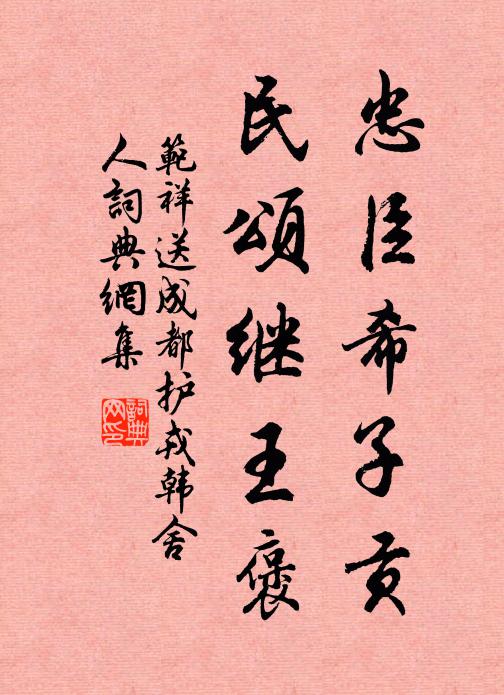 忠臣希子贡
民颂继王褒
範祥送成都护戎韩舍
人詞典網集
詞典网印